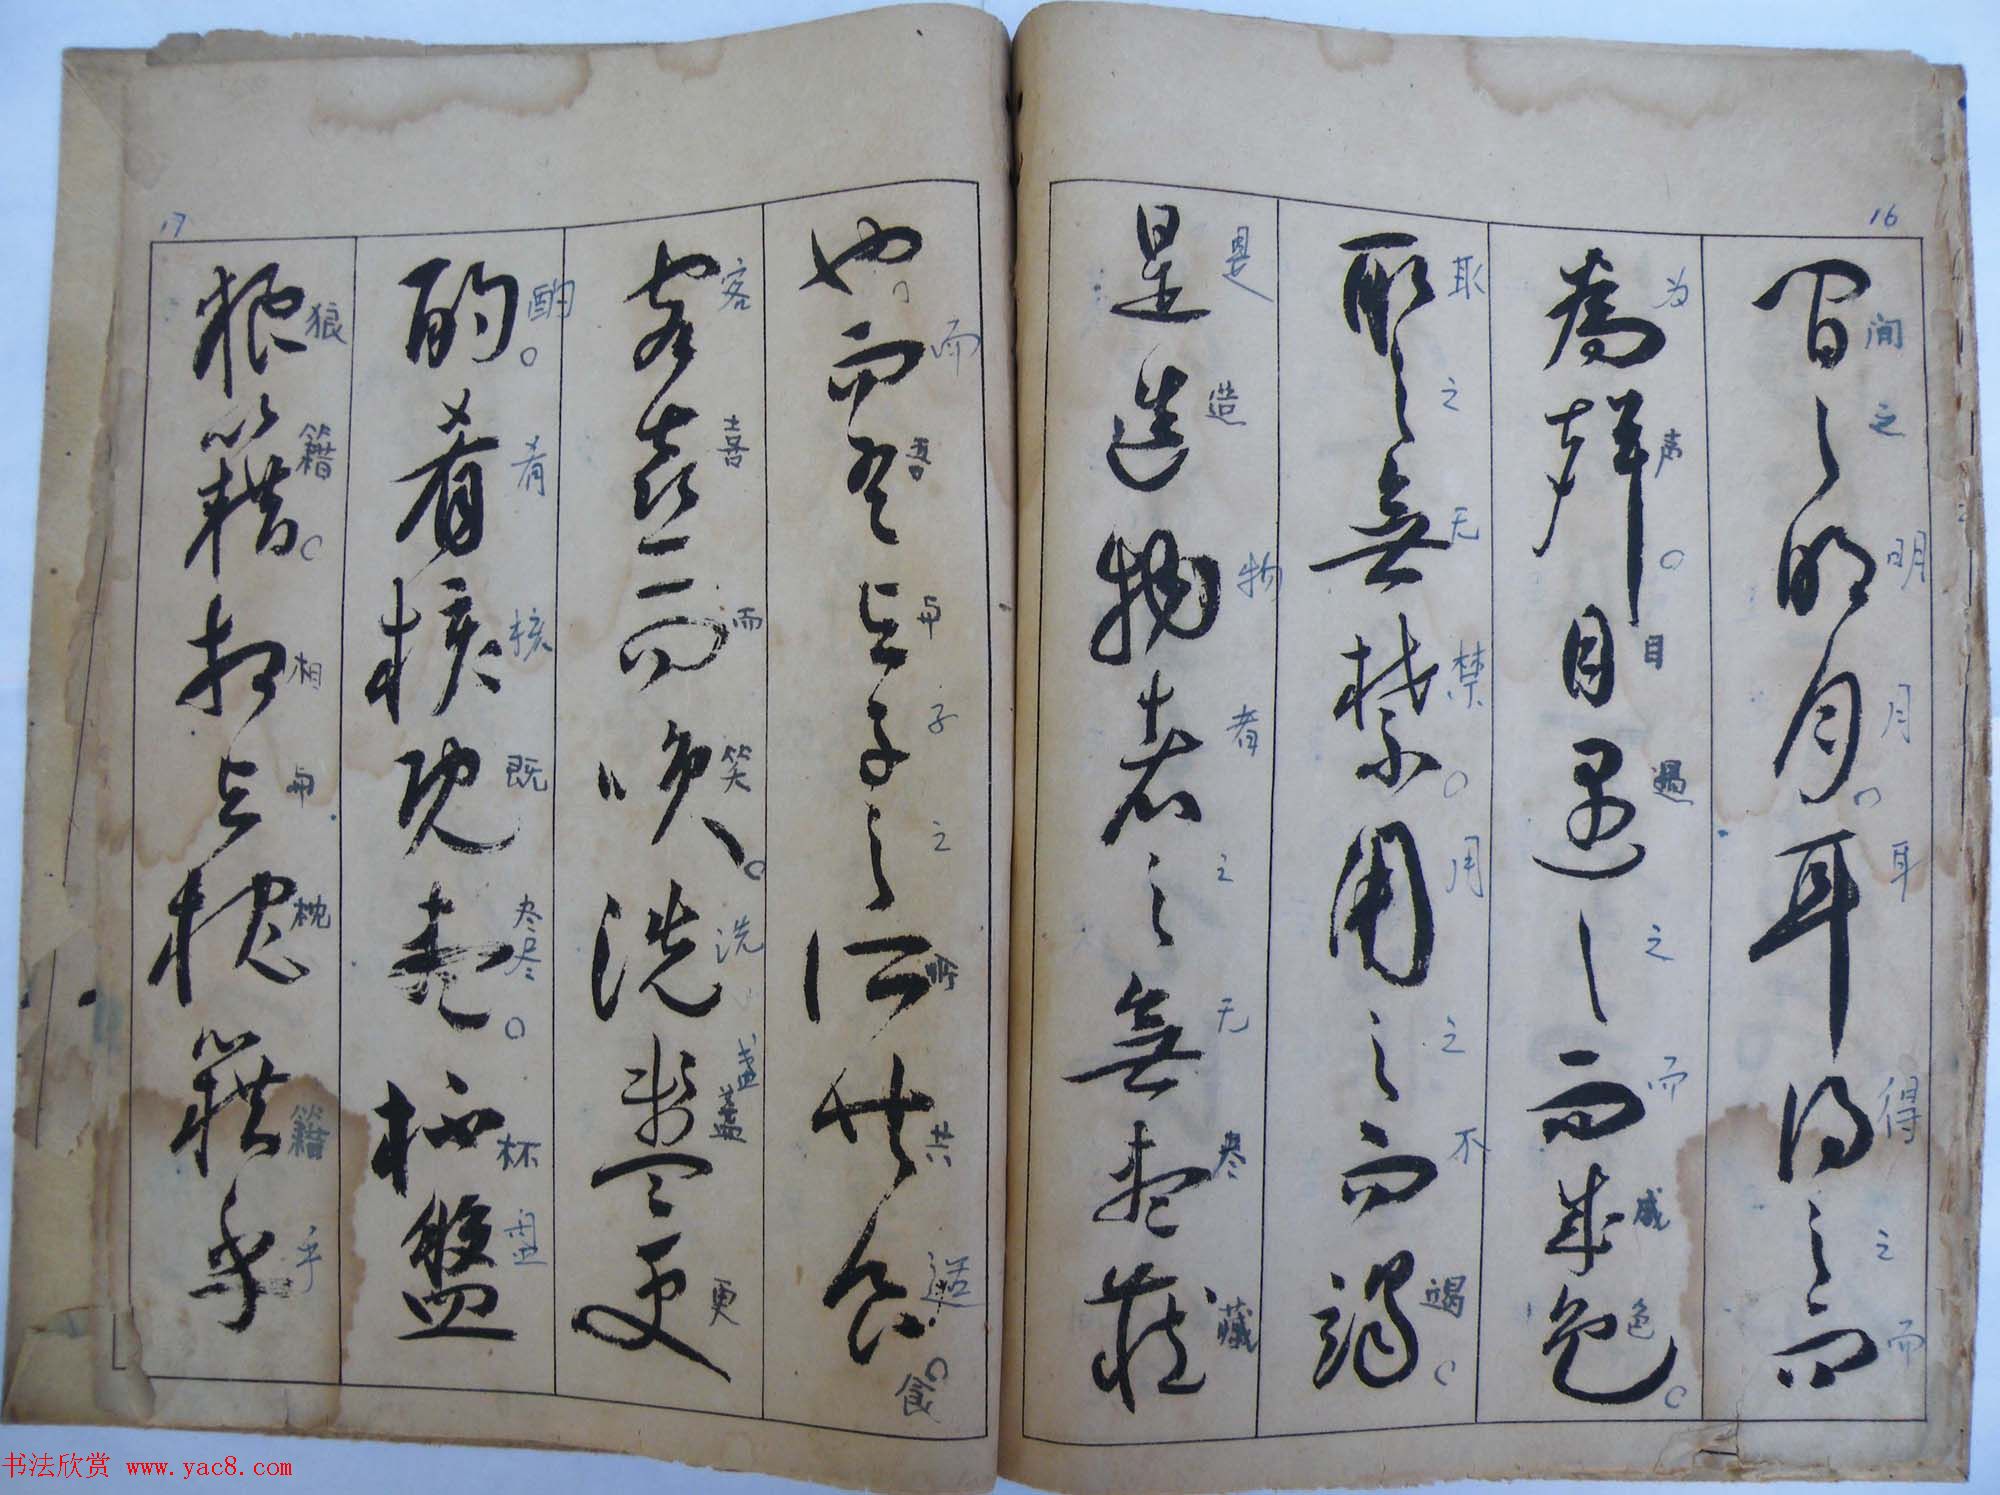 16
間之明月耳得之而
间之明月。耳得之而
為聲目遇之而成色
为声。目遇之而成色。
取之無禁用之不竭
取之无禁。用之不竭。
是造物者之無盡藏
是造物者之无尽藏
也而吾與子之所共食
而吾与子之所共适。食
客喜而笑洗盞更
客喜而笑。洗盏盞更
酌肴核既盡杯盤
酌。肴核既尽。杯盘
狼籍相與枕籍乎
狼籍。相与枕籍乎
17
书法欣赏 www.yac8.com